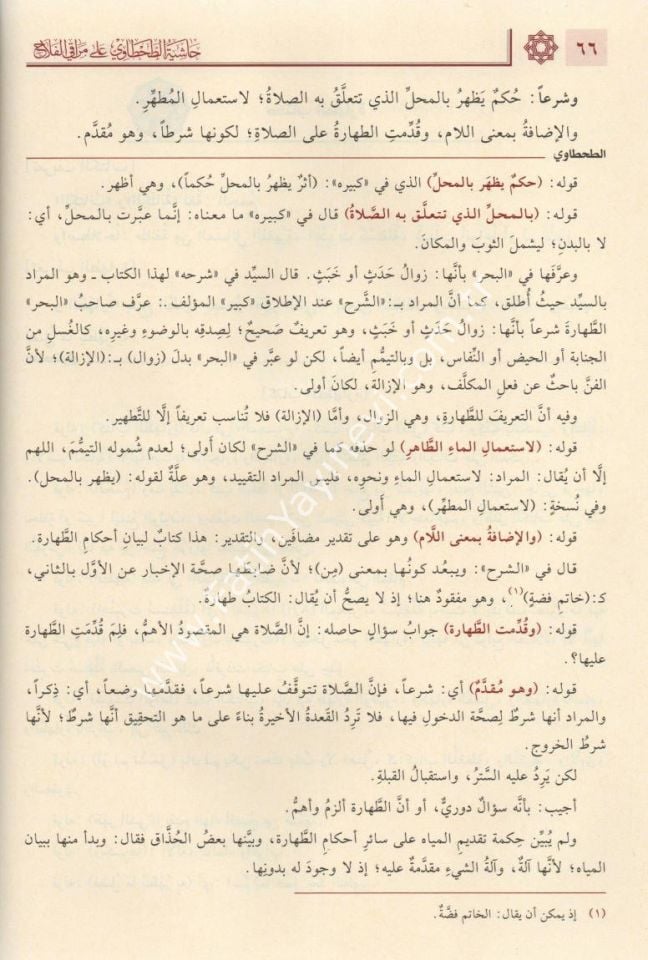 ٦٦
حاشية الطحطاوي على مراقي الفلاح
وشرعاً: حُكمٌ يَظهرُ بالمحلِّ الذي تتعلَّقُ به الصلاةُ؛ لاستعمالِ المُطهِّرِ.
والإضافةُ بمعنى اللام، وقُدِّمتِ الطهارةُ على الصلاةِ؛ لكونها شرطاً، وهو مُقدَّم.
الطحطاوي
قوله: (حكمٌ يظهَر بالمحلِّ) الذي في «كبيره»: (أثرٌ يظهرُ بالمحلِّ حُكماً)، وهي أظهر.
قوله: (بالمحلِّ الذي تتعلَّق به الصَّلاةُ) قال في «كبيره» ما معناه: إنَّما عبَّرت بالمحلِّ، أي:
لا بالبدنِ؛ ليشملَ الثوبَ والمكانَ.
وعرَّفها في «البحر» بأنَّها: زوالُ حَدَثٍ أو خَبَثٍ. قال السيِّد في «شرحه» لهذا الكتاب ـ وهو المراد
بالسيِّد حيثُ أُطلق، كما أنَّ المراد بـ:«الشَّرح» عند الإطلاق «كبير» المؤلف ـ: عرَّف صاحبُ «البحر»
الطَّهارةَ شرعاً بأنَّها: زوالُ حَدَثٍ أو خَبَثٍ، وهو تعريفٌ صَحيحٌ؛ لِصدقِه بالوضوءِ وغيرِه، كالغُسلِ من
الجنابة أو الحيض أو النِّفاس، بل وبالتيمُّم أيضاً، لكن لو عبَّر في «البحر» بدلَ (زوال) بـ:(الإزالة)؛ لأنَّ
الفنَّ باحثٌ عن فعلِ المكلَّف، وهو الإزالة، لكانَ أولى.
وفيه أنَّ التعريفَ للطَّهارةِ، وهي الزوال، وأمَّا (الإزالة) فلا تُناسب تعريفاً إلَّا للتَّطهير.
قوله: (لاستعمالِ الماءِ الطَّاهر) لو حذفه كما في «الشرح» لكان أَولى؛ لعدم شُموله التيمُّمَ، اللهم
إلا أن يُقال: المراد: لاستعمال الماءِ ونحوِه، فليس المراد التقييد، وهو علَّةٌ لقوله: (يظهر بالمحل).
وفي نُسخةٍ: (لاستعمال المطهِّر)، وهي أَولى.
قوله: (والإضافةُ بمعنى اللَّام) وهو على تقدير مضافَين، والتقدير: هذا كتابٌ لبيانِ أحكامِ الطَّهارة.
قال في «الشرح»: ويبعد كونُها بمعنى (مِن)؛ لأنَّ ضابطَها صحَّة الإخبارِ عن الأوَّل بالثاني،
كـ:(خاتم فضة)(١)، وهو مفقودٌ هنا؛ إذ لا يصحُّ أن يُقال: الكتابُ طهارةٌ.
قوله: (وقُدِّمت الطَّهارة) جوابُ سؤالٍ حاصله: إنَّ الصَّلاة هي المقصودُ الأهمُّ، فلِمَ قُدِّمَتِ الطَّهارة
عليها؟.
قوله: (وهو مُقدَّمٌ) أي: شرعاً، فإنَّ الصَّلاة تتوقَّفُ عليها شرعاً، فقدَّمها وضعاً، أي: ذِكراً،
والمراد أنها شرطٌ لِصحَّة الدخولِ فيها، فلا تَرِدُ القَعدةُ الأخيرةُ بناءً على ما هو التحقيق أنَّها شرطٌ؛ لأنَّها
شرطُ الخروجِ.
لكن يَرِدُ عليه السَّترُ، واستقبالُ القِبلةِ.
أُجيب: بأنَّه سؤالٌ دوريٌّ، أو أنَّ الطَّهارة ألزمُ وأهمُّ.
ولم يُبيِّن حِكمة تقديمِ المياه على سائرِ أحكامِ الطَّهارة، وبيَّنها بعضُ الحُذَّاق فقال: وبدأ منها ببيان
المياه؛ لأنَّها آلةٌ، وآلةُ الشيءِ مقدَّمةٌ عليه؛ إذ لا وجودَ له بدونِها.
(١) إذ يمكن أن يقال: الخاتم فضَّةٌ.